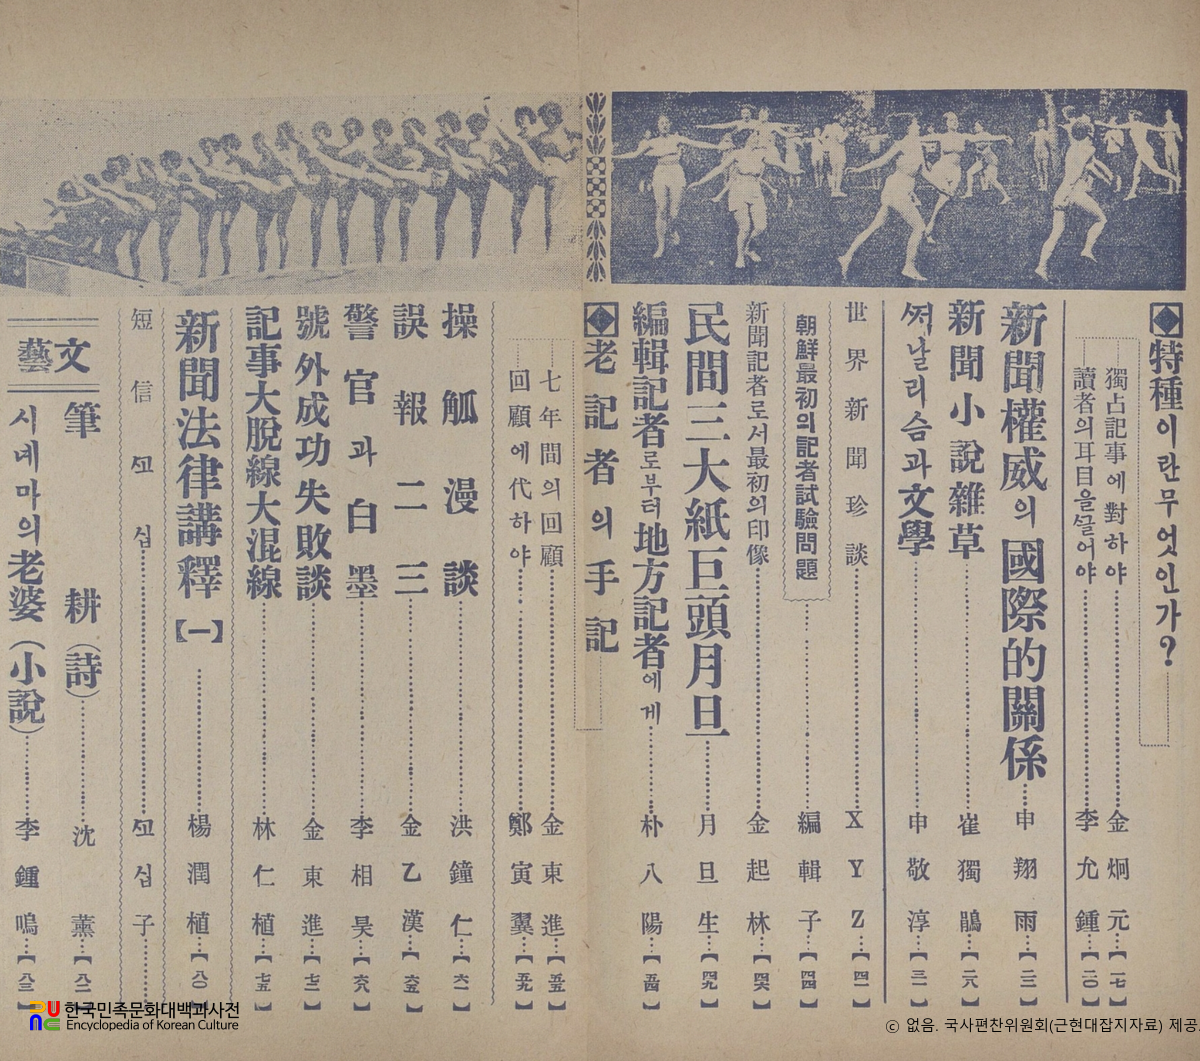 特種이란무엇인가?
獨占記事에對하야……金炯元…【一七】
讀者의耳目을끌어야……李允鍾…【二〇】
新聞權威의國際的關係……申翔雨…【二三】
新聞小說雜草……崔獨鵑…【二八】
써날리슴과文學……申敬淳…【三一】
世界新聞珍談……XYZ…【四一】
朝鮮最初의記者試驗問題……編輯子…【四四】
新聞記者로서最初의印像……金起林…【四六】
民間三大紙巨頭月旦……月旦生…【四九】
編輯記者로부터地方記者에게……朴八陽…【五四】
老記者의手記
七年間의回顧……金東進…【五五】
回顧에代하야……鄭寅翼…【五九】
操觚漫談……洪鐘仁…【六一】
誤報二三……金乙漢…【六五】
警官과白墨……李相昊…【六八】
號外成功失敗談……金東進…【七二】
記事大脫線大混線……林仁植…【七五】
新聞法律講釋【一】……楊潤植…【八〇】
短信꼬십……꼬십子……
文藝
筆耕(詩)……沈薰…【八二】
시네마의老婆(小說)……李鍾鳴…【八三】
한국민족문화대백과사전
Encyclopedia of Korean Culture
ⓒ 없음. 국사편찬위원회(근현대잡지자료) 제공.